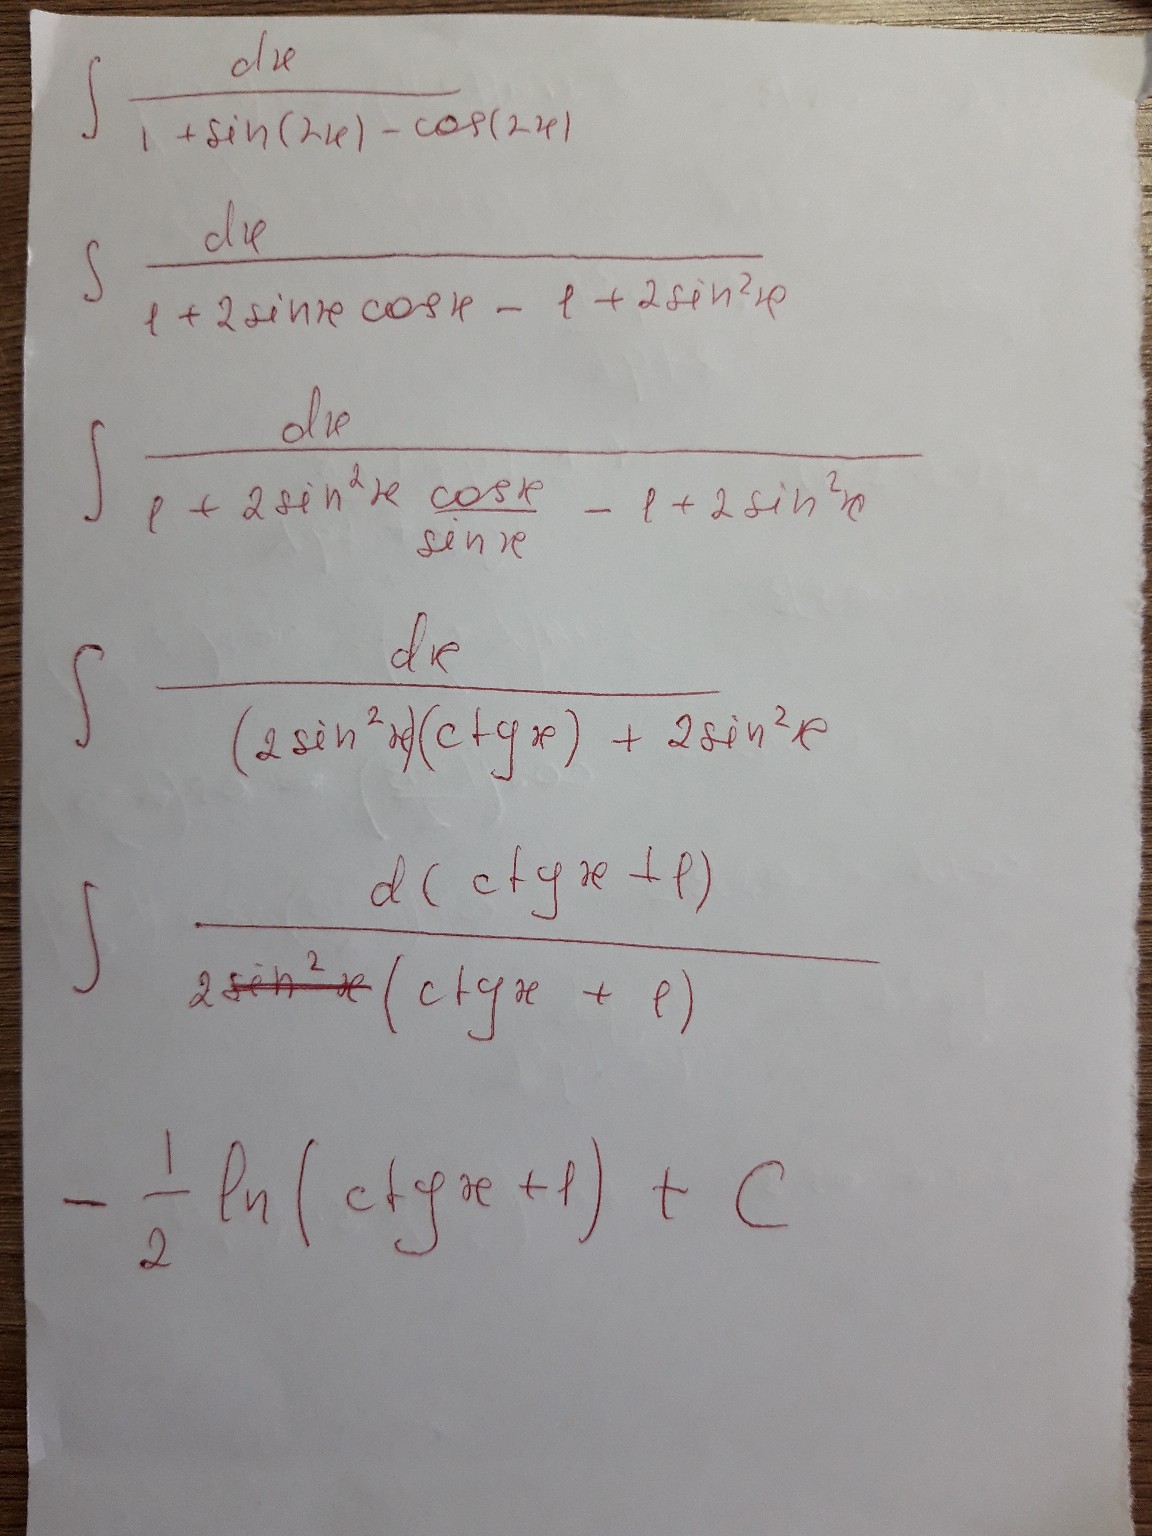 ∫ dx / (1 + sin(2x) - cos(2x))
∫ dx / (1 + 2 sin x cos x - 1 + 2 sin² x)
∫ dx / (1 + 2 sin² x (cos x / sin x) - 1 + 2 sin² x)
∫ dx / ((2 sin² x)(ctg x) + 2 sin² x)
∫ d(ctg x + 1) / (2 sin² x (ctg x + 1))
- 1/2 ln(ctg x + 1) + C